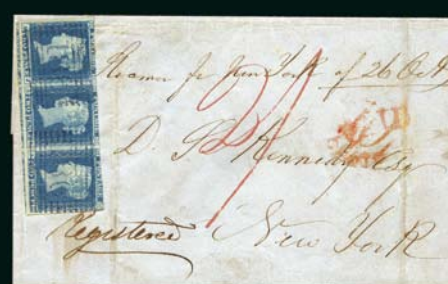 Steamer for New York of 26 Oct
2/
D. S. Kennedy Esq
PAID
Registered New York